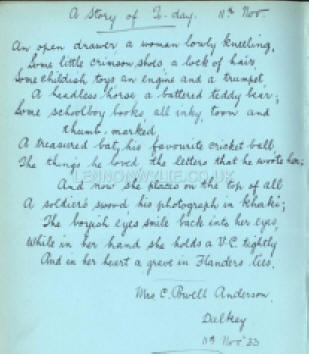 A Story of To-day. 11th Nov.
An open drawer, a woman lowly kneeling,
Some little crimson shoes, a lock of hair,
Some childish toys an engine and a trumpet
A headless horse a battered teddy bear;
Some schoolboy books, all inky, torn and
thumb-marked,
A treasured bat, his favourite cricket ball,
The things he loved the letters that he wrote her;
And now she places on the top of all
A soldier's sword his photograph in khaki;
The boyish eyes smile back into her eyes,
While in her hand she holds a V.C. tightly
And in her heart a grave in Flanders lies.
Mrs C. Powell Anderson.
Dalkey
11th Nov '33
LENNONWYLIE.CO.UK